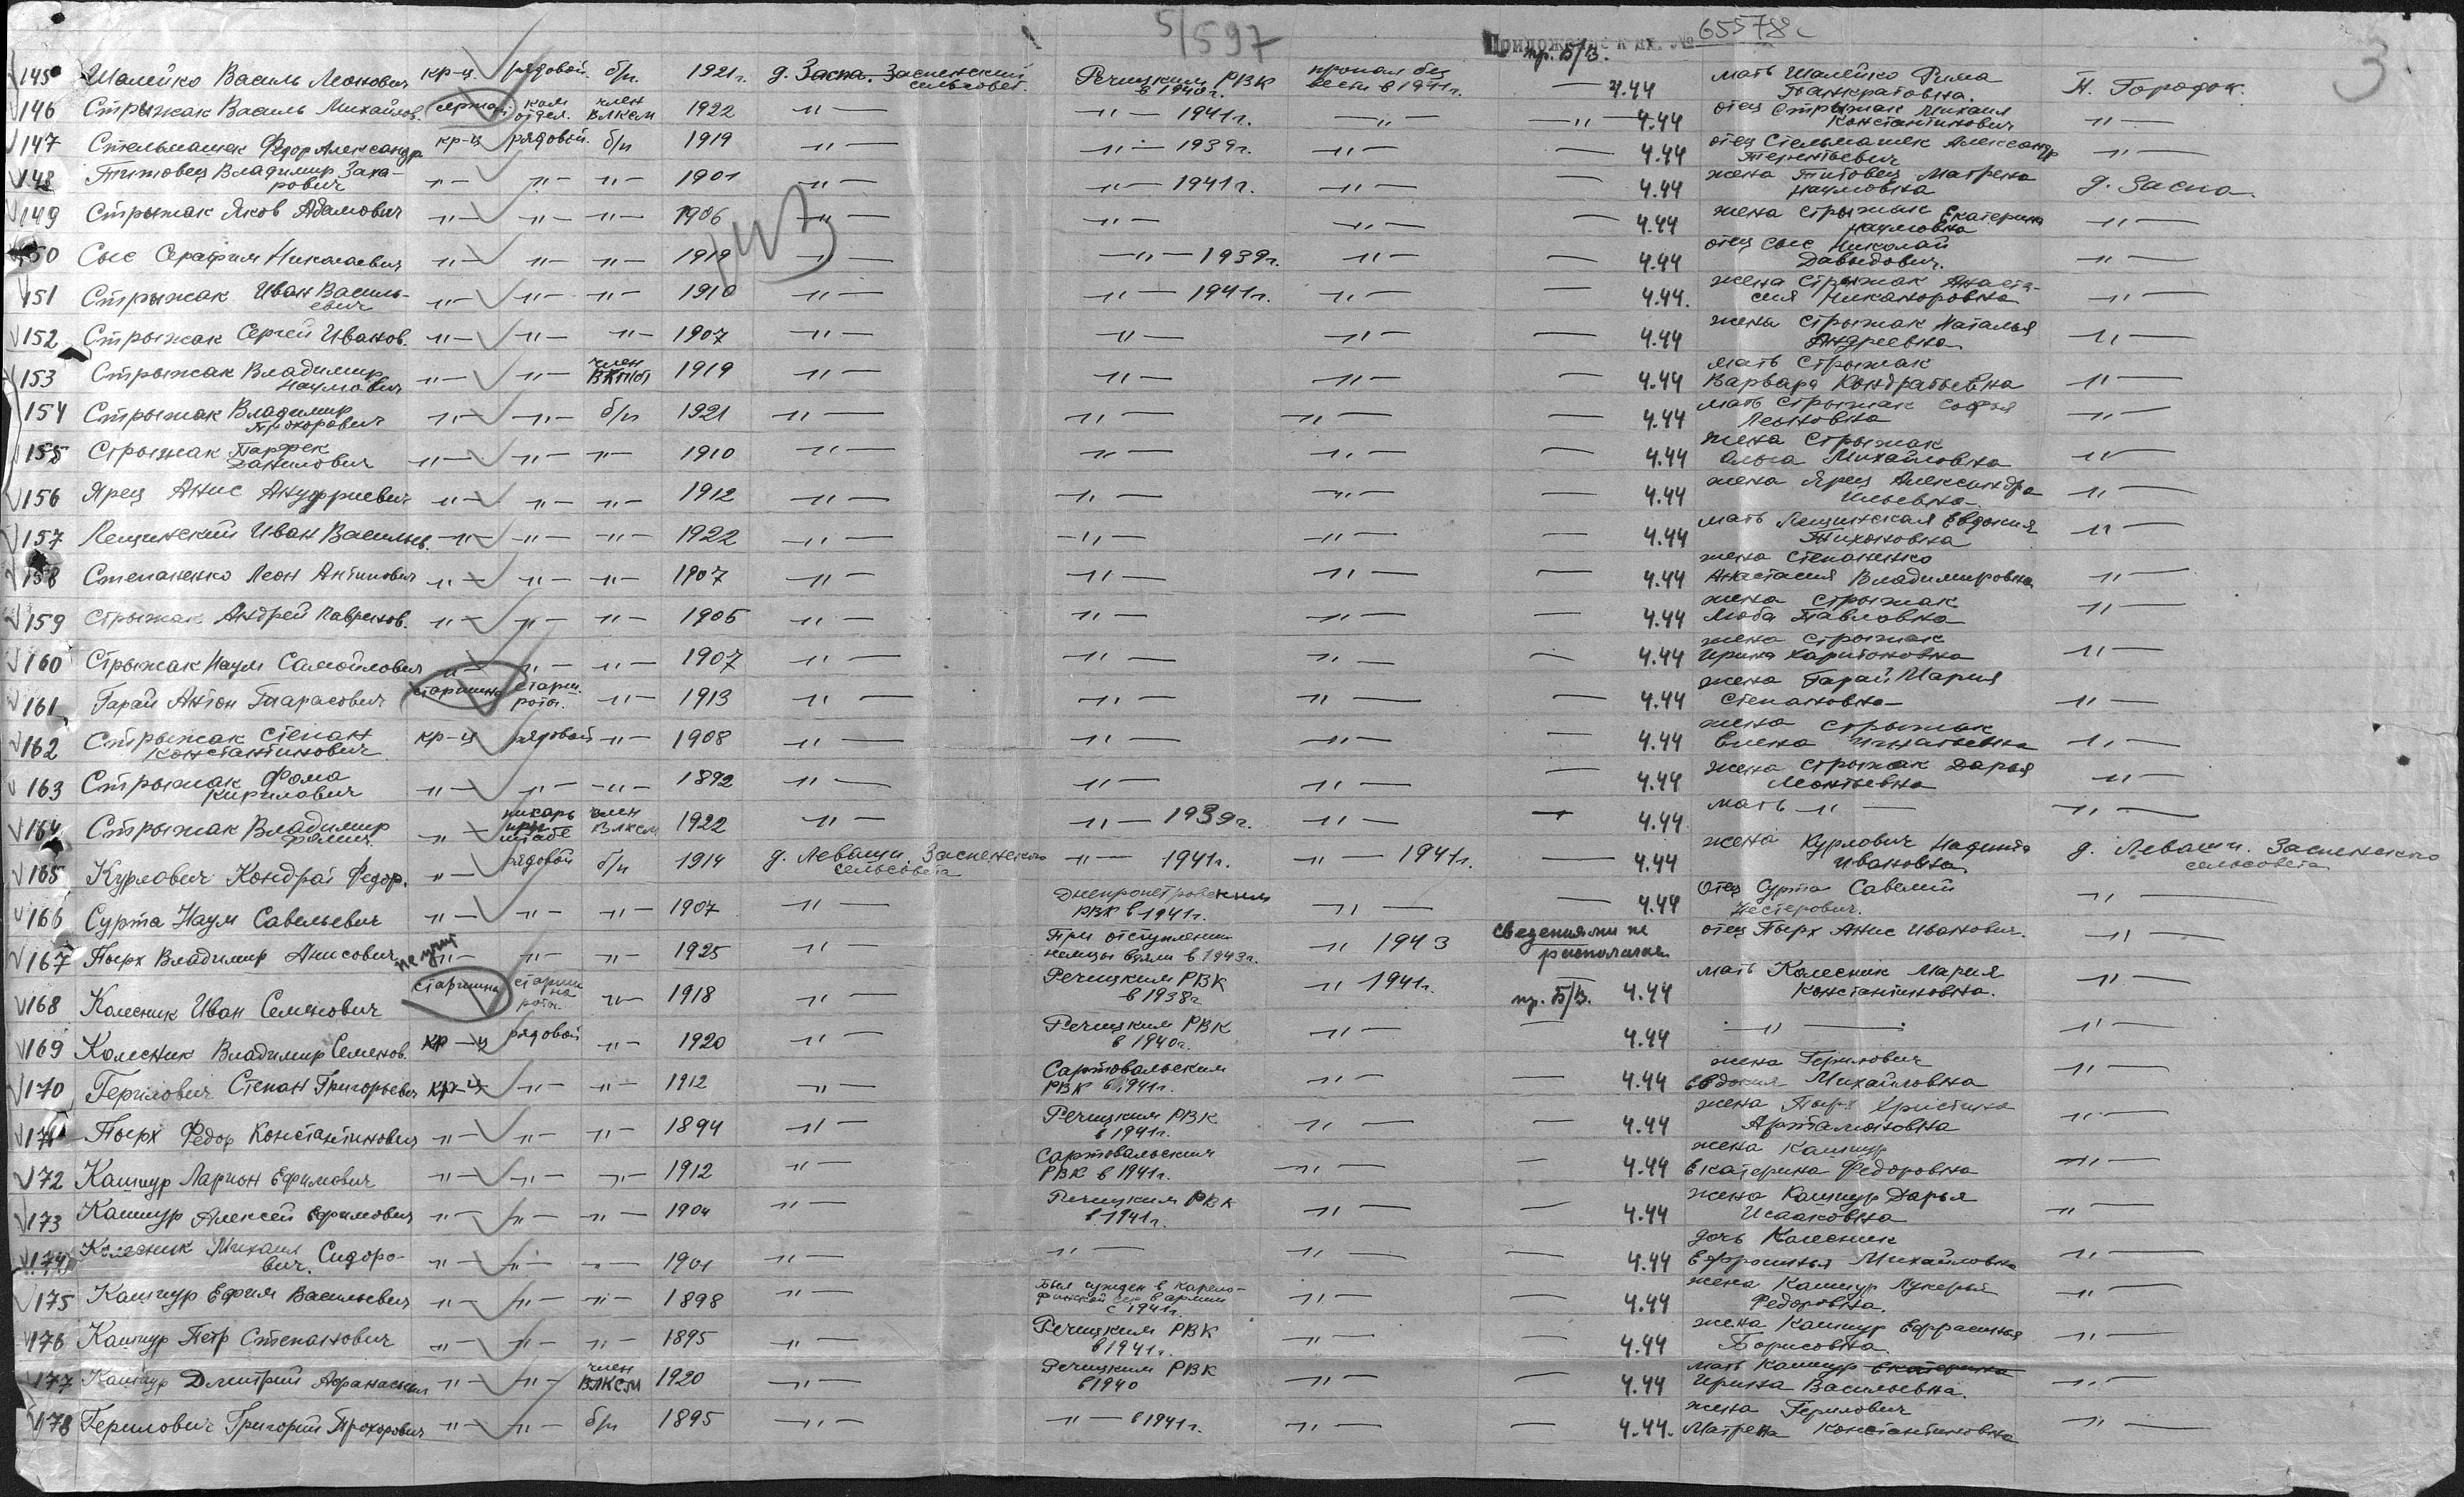 5/597
Приложение к вх. № 65578с
3
пр. Б/В.
145 Шалейко Василь Леонович кр-ц рядовой б/п 1921г. д. Заспа. Заспенский сельсовет. Речицким РВК в 1940г. пропал без вести в 1941г. — 4.44 мать Шалейко Рима Панкратовна. Н. Городок.
146 Стрыжак Василь Михайлов. сержан. ком. отдел. член ВЛКСМ 1922 —"— —"— 1941г. —"— —"— 4.44 отец Стрыжак Михаил Константинович —"—
147 Стельмашек Федор Александр кр-ц рядовой б/п 1919 —"— —"— 1939г. —"— — 4.44 отец Стельмашек Александр Терентьевич —"—
148 Титовец Владимир Захарович —"— —"— —"— 1901 —"— —"— 1941г. —"— — 4.44 жена Титовец Матрена Наумовна д. Заспа.
149 Стрыжак Яков Адамович —"— —"— —"— 1906 —"— —"— —"— — 4.44 жена Стрыжак Екатерина Наумовна —"—
150 Сыс Серафим Николаевич —"— —"— —"— 1919 —"— —"— 1939г. —"— — 4.44 отец Сыс Николай Давыдович. —"—
151 Стрыжак Иван Васильевич —"— —"— —"— 1910 —"— —"— 1941г. —"— — 4.44. жена Стрыжак Анастасия Никаноровна —"—
152 Стрыжак Сергей Иванов. —"— —"— —"— 1907 —"— —"— —"— — 4.44 жена Стрыжак Наталья Андреевна —"—
153 Стрыжак Владимир Наумович —"— —"— член ВКП(б) 1919 —"— —"— —"— — 4.44 мать Стрыжак Варвара Кондратьевна —"—
154 Стрыжак Владимир Прохорович —"— —"— б/п 1921 —"— —"— —"— — 4.44 мать Стрыжак Софья Леоновна —"—
155 Стрыжак Парфек Данилович —"— —"— —"— 1910 —"— —"— —"— — 4.44 жена Стрыжак Ольга Михайловна —"—
156 Ярец Анис Ануфриевич —"— —"— —"— 1912 —"— —"— —"— — 4.44 жена Ярец Александра Ильевна —"—
157 Лещинский Иван Васильев. —"— —"— —"— 1922 —"— —"— —"— — 4.44 мать Лещинская Евдокия Тихоновна —"—
158 Степаненко Леон Антипович —"— —"— —"— 1907 —"— —"— —"— — 4.44 жена Степаненко Анастасия Владимировна —"—
159 Стрыжак Андрей Лавренов. —"— —"— —"— 1906 —"— —"— —"— — 4.44 жена Стрыжак Люба Павловна —"—
160 Стрыжак Наум Самойлович —"— —"— —"— 1907 —"— —"— —"— — 4.44 жена Стрыжак Ирина Харитоновна —"—
161 Гарай Антон Тарасович старшина старш. роты. —"— 1913 —"— —"— —"— — 4.44 жена Гарай Мария Степановна —"—
162 Стрыжак Степан Константинович кр-ц рядовой —"— 1908 —"— —"— —"— — 4.44 жена Стрыжак Елена Игнатьевна —"—
163 Стрыжак Фома Кирилович —"— —"— —"— 1892 —"— —"— —"— — 4.44 жена Стрыжак Дарья Леонтьевна —"—
164 Стрыжак Владимир Фомич —"— писарь при штабе член ВЛКСМ 1922 —"— —"— 1939г. —"— — 4.44 мать —"— —"—
165 Курлович Кондрат Федор. —"— рядовой б/п 1914 д. Леваши. Заспенского сельсовета —"— 1941г. —"— 1941г. — 4.44 жена Курлович Надежда Ивановна д. Леваши. Заспенского сельсовета
166 Сурта Наум Савельевич —"— —"— —"— 1907 —"— Днепропетровским РВК в 1941г. —"— — 4.44 Отец Сурта Савелий Нестерович. —"—
167 Пырх Владимир Анисович не учит —"— —"— —"— 1925 —"— При отступлении немцы взяли в 1943г. —"— 1943 сведениями не располагаем отец Пырх Анис Иванович. —"—
168 Колесник Иван Семенович старшина старшина роты. —"— 1918 —"— Речицким РВК в 1938г —"— 1941г. пр. Б/В. 4.44 мать Колесник Мария Константиновна. —"—
169 Колесник Владимир Семенов. кр-ц рядовой —"— 1920 —"— Речицким РВК в 1940г. —"— — 4.44 —"— —"—
170 Герилович Степан Григорьевич кр-ц —"— —"— 1912 —"— Сартовальским РВК в 1941г. —"— — 4.44 жена Герилович Евдокия Михайловна —"—
171 Пырх Федор Константинович —"— —"— —"— 1894 —"— Речицким РВК в 1941г. —"— — 4.44 жена Пырх Христина Артамоновна —"—
172 Кашкур Ларион Ефимович —"— —"— —"— 1912 —"— Сартовальским РВК в 1941г. —"— — 4.44 жена Кашкур Екатерина Федоровна —"—
173 Кашкур Алексей Ефимович —"— —"— —"— 1904 —"— Речицким РВК в 1941г. —"— — 4.44 жена Кашкур Дарья Исааковна —"—
174 Колесник Михаил Сидорович. —"— —"— —"— 1901 —"— —"— —"— — 4.44 дочь Колесник Ефросинья Михайловна —"—
175 Кашкур Ефим Васильевич —"— —"— —"— 1898 —"— был сужден в Карело-финской ССР в армии с 1941г. —"— — 4.44 жена Кашкур Лукерья Федоровна. —"—
176 Кашкур Петр Степанович —"— —"— —"— 1895 —"— Речицким РВК в 1941г. —"— — 4.44 жена Кашкур Ефросинья Борисовна. —"—
177 Кашкур Дмитрий Афанасьевич —"— —"— член ВЛКСМ 1920 —"— Речицким РВК в 1940 —"— — 4.44 мать Кашкур Екатерина Ирина Васильевна. —"—
178 Герилович Григорий Прохорович —"— —"— б/п 1895 —"— —"— в 1941г. —"— — 4.44. жена Герилович Матрена Константиновна —"—